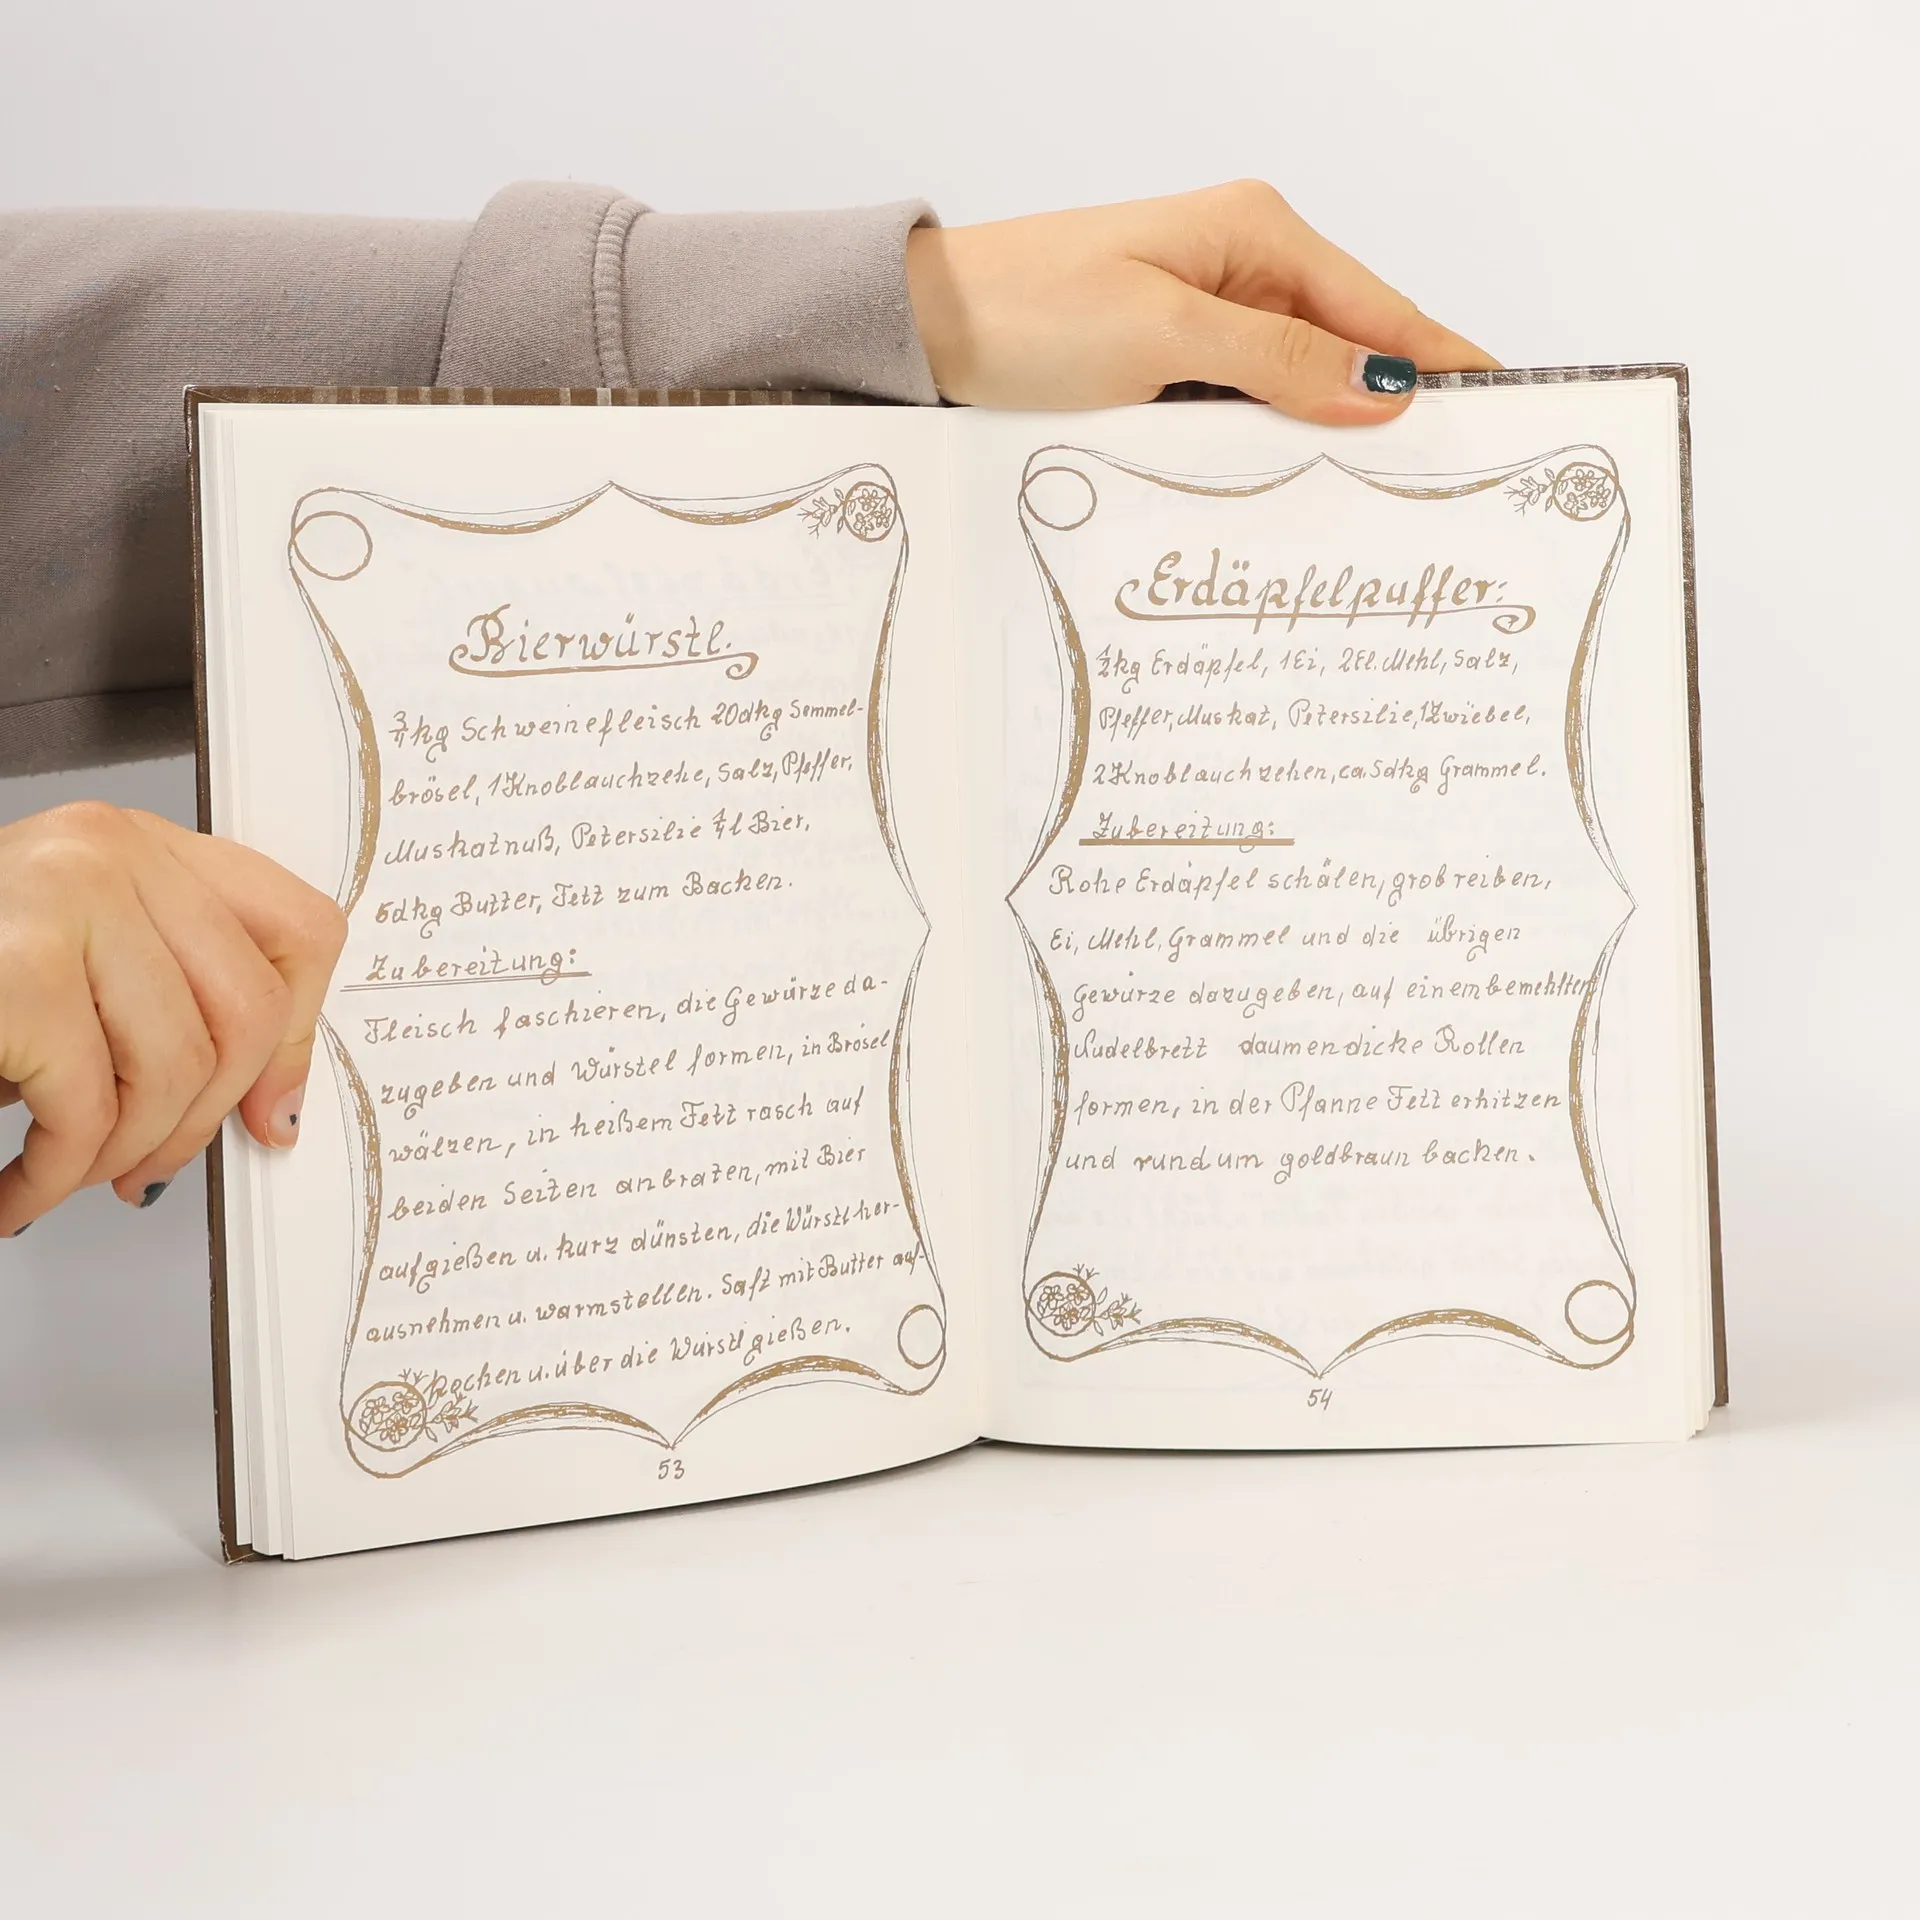 Bierwürstl.
3/4 kg Schweinefleisch 20dkg Semmel-
brösel, 1 Knoblauchzehe, Salz, Pfeffer,
Muskatnuß, Petersilie 1/4 l Bier,
5dkg Butter, Fett zum Backen.
Zubereitung:
Fleisch faschieren, die Gewürze da-
zugeben und Würstel formen, in Brösel
wälzen, in heißem Fett rasch auf
beiden Seiten anbraten, mit Bier
aufgießen u. kurz dünsten, die Würstl her-
ausnehmen u. warmstellen. Saft mit Butter auf-
kochen u. über die Würstl gießen.
53
Erdäpfelpuffer:
1/2 kg Erdäpfel, 1 Ei, 2 El. Mehl, Salz,
Pfeffer, Muskat, Petersilie, 1 Zwiebel,
2 Knoblauchzehen, ca. 5dkg Grammel.
Zubereitung:
Rohe Erdäpfel schälen, grob reiben,
Ei, Mehl, Grammel und die übrigen
Gewürze dazugeben, auf einem bemehlten
Nudelbrett daumendicke Rollen
formen, in der Pfanne Fett erhitzen
und rundum goldbraun backen.
54